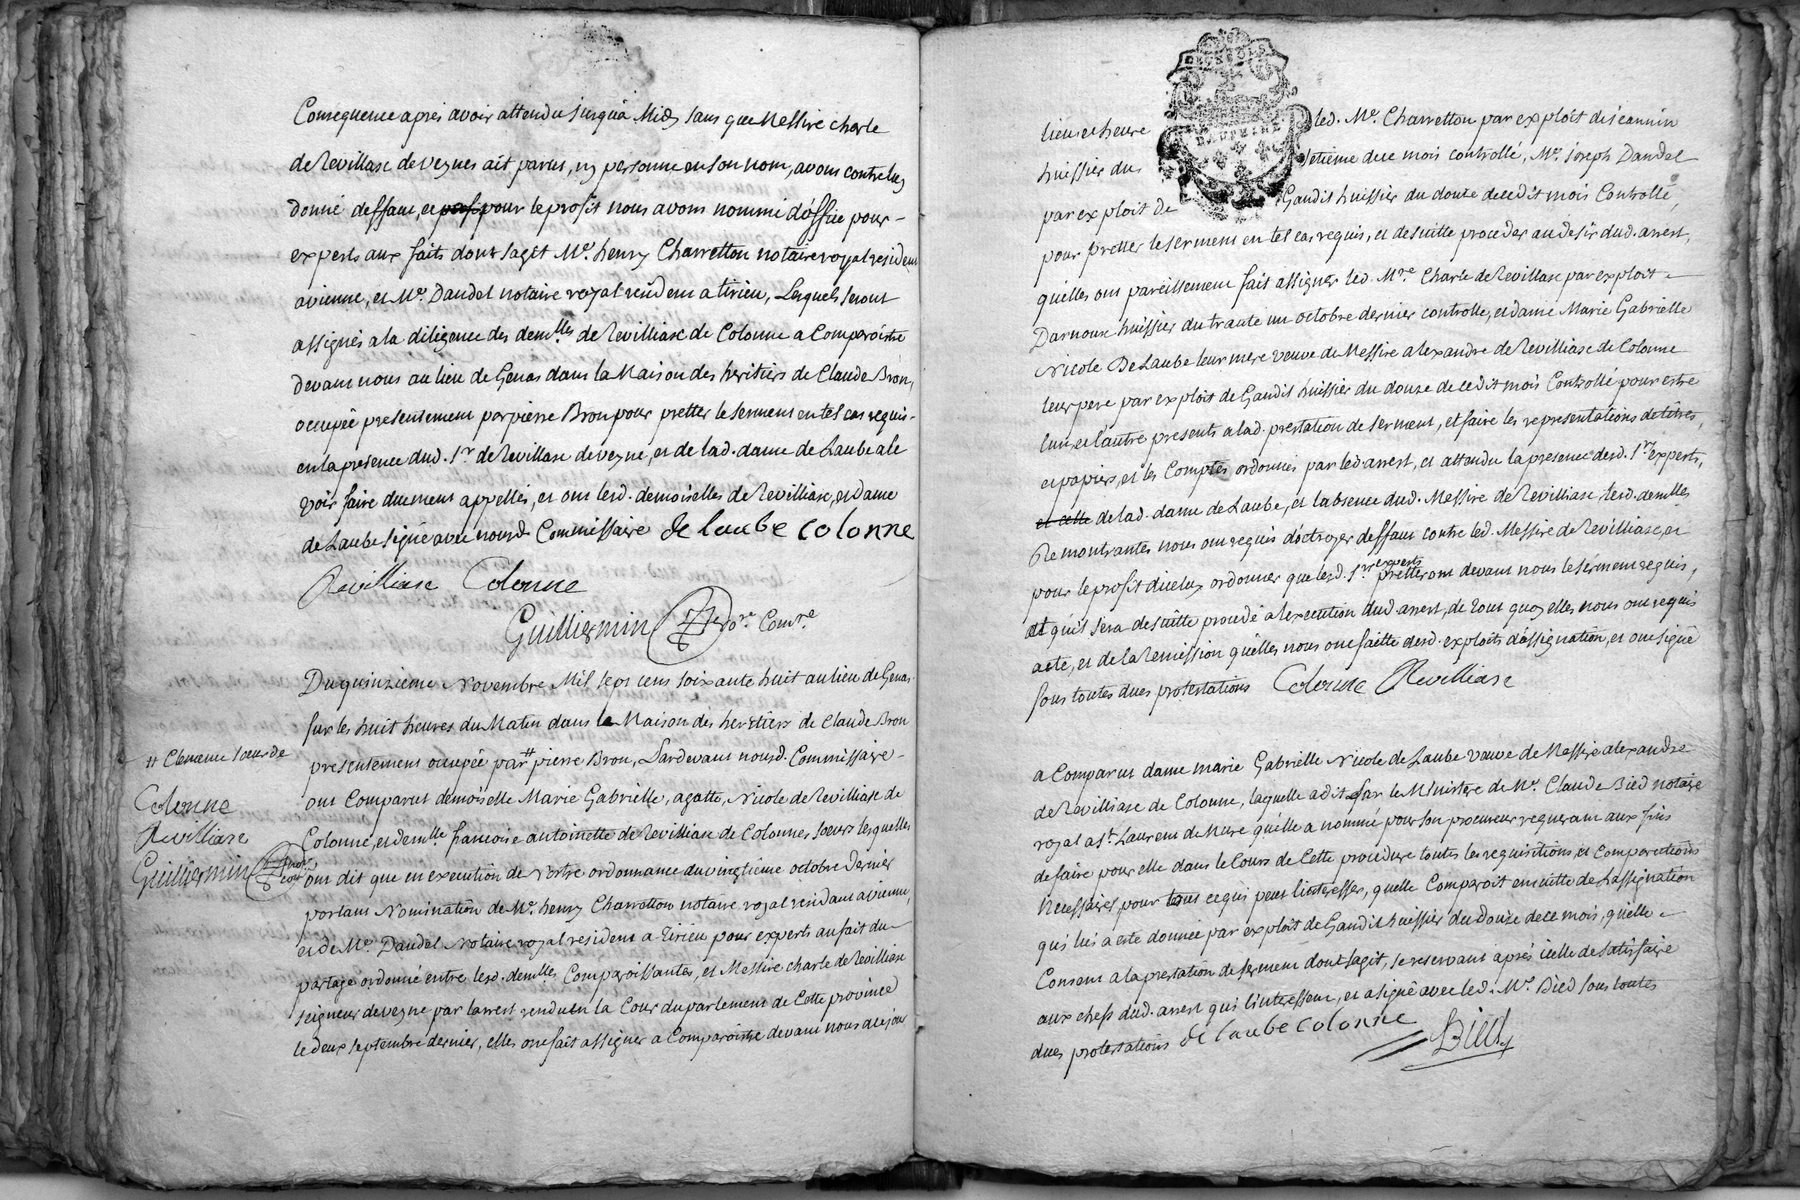 Consequence apres avoir attendu Jusqu'a Midy sans que Messire charle
de Revilliase de veynes ait paru, ny personne en son nom, avons contre luy
donné deffaut, et pour le profit nous avons nommé d'office pour
experts aux faits dont sagit Me. henry Charretton notaire royal resident
a vienne, et Me. Daudel notaire royal resident a tirieu, Lesquels seront
assignés a la diligence des demlles de Revilliase de Colonne a Comparoitre
devant nous au lieu de Genas dans la Maison des heritiers de Claude Bron,
occupée presentement par pierre Bron pour pretter le serment en tel cas requis
en la presence dud. Sr. de Revilliase de veyne, et de lad. dame de Laube a le
voir faire duement appellés, et ont lesd. demoiselles de Revilliase, et dame
de Laube signé avec nousd. Commissaire de laube colonne
Revilliase Colonne
Guilliermin Comre.
Du quinzieme Novembre Mil sept cens soixante huit au lieu de Genas
sur les huit heures du Matin dans la Maison des heretiers de Claude Bron
presentement occupée par # pierre Bron, Pardevant nousd. Commissaire
ont Comparus demoiselle Marie Gabrielle, agatte, Nicole de Revilliase de
Colonne, et demlle. francoise antoinette de Revilliase de Colonnes soeurs lesquelles
ont dit que en execution de Notre ordonnance du vingtieme octobre dernier
portant Nomination de Me. henry Charretton notaire royal residant a vienne,
et de Me. Daudel Notaire royal resident a Tirieu pour experts au fait du
partage ordonné entre lesd. demlles. Comparoissantes, et Messire charle de Revilliase
seigneur de veyne par larrest rendu en la Cour du parlement de Cette province
le deux septembre dernier, elles ont fait assigner a Comparoitre devant nous a ce jour
# Clemence soeur de
Colonne
Revilliase
Guilliermin
lieu et heure led. Me. Charretton par exploit de jeannin
huissier du de ce mois controllé, Me. joseph Daudel
par exploit de Gaudit huissier du douze de cedit mois Controllé,
pour pretter le serment en tel cas requis, et de suitte proceder au desir dud. arrest,
quelles ont pareillement fait assigner led. Mre Charle de Revilliase par exploit
Darnoux huissier du trante un octobre dernier controlle, et dame Marie Gabrielle
Nicole De Laube leur mere veuve de Messire alexandre de Revilliase de Colonne
leur pere par exploit de Gaudit huissier du douze de cedit mois Controllé pour estre
lun et l'autre presents a lad. prestation de serment, et faire les representations de titres,
et papiers, et les Comptes ordonnés par led arrest, et attendu la presence desd. Srs experts,
et celle de lad. dame de Laube, et l'absence dud. Messire de Revilliase, lesd. demlles
Remontrantes nous ont requis d'octroyer deffaut contre led. Messire de Revilliase, et
pour le profit diceluy ordonner que lesd. Srs experts pretteront devant nous le serment requis,
et qu'il sera de suitte procedé a lexecution dud. arrest, de tout quoy elles nous ont requis
acte, et de la Remission qu'elles nous ont faitte desd. exploits d'assignation, et ont signé
sous toutes dues protestations Colonne Revilliase
a Comparut dame marie Gabrielle Nicole de Laube veuve de Messire alexandre
de Revilliase de Colonne, laquelle a dit par le Ministere de Me. Claude Bied notaire
royal a St. Laurent de Mure qu'elle a nommé pour son procureur requerant aux fins
de faire pour elle dans le Cours de Cette procedure toutes les requisitions, et Comparutions
Necessaires pour tout ce qui peut l'interesser, quelle Comparoit ensuitte de l'assignation
qui lui a este donnée par exploit de Gaudit huissier du douze de ce mois, qu'elle
Consent a la prestation de serment dont sagit, se reservant aprés icelle de satisfaire
aux chefs dud. arrest qui l'interessent, et a signé avec led. Me. Bied sous toutes
dues protestations de laube colonne Bied